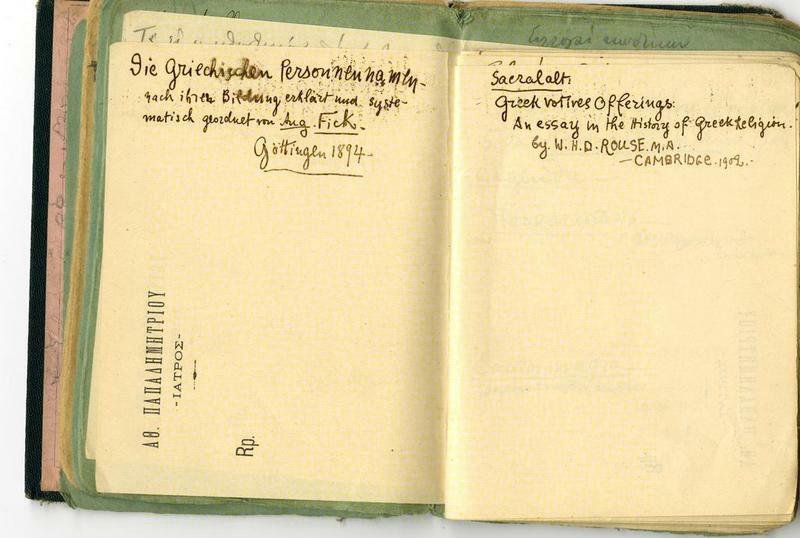 Die Griechischen Personennamen-
nach ihren Bildung erklärt und syste-
matisch geordnet von Aug. Fick.
Göttingen 1894-
ΑΘ. ΠΑΠΑΔΗΜΗΤΡΙΟΥ
-ΙΑΤΡΟΣ-
Rp.
Sacralalt.
Greek votives Offerings:
An essay in the History of Greek Religion.
by. W. H. D. ROUSE. M.A.
-CAMBRIDGE. 1902.-